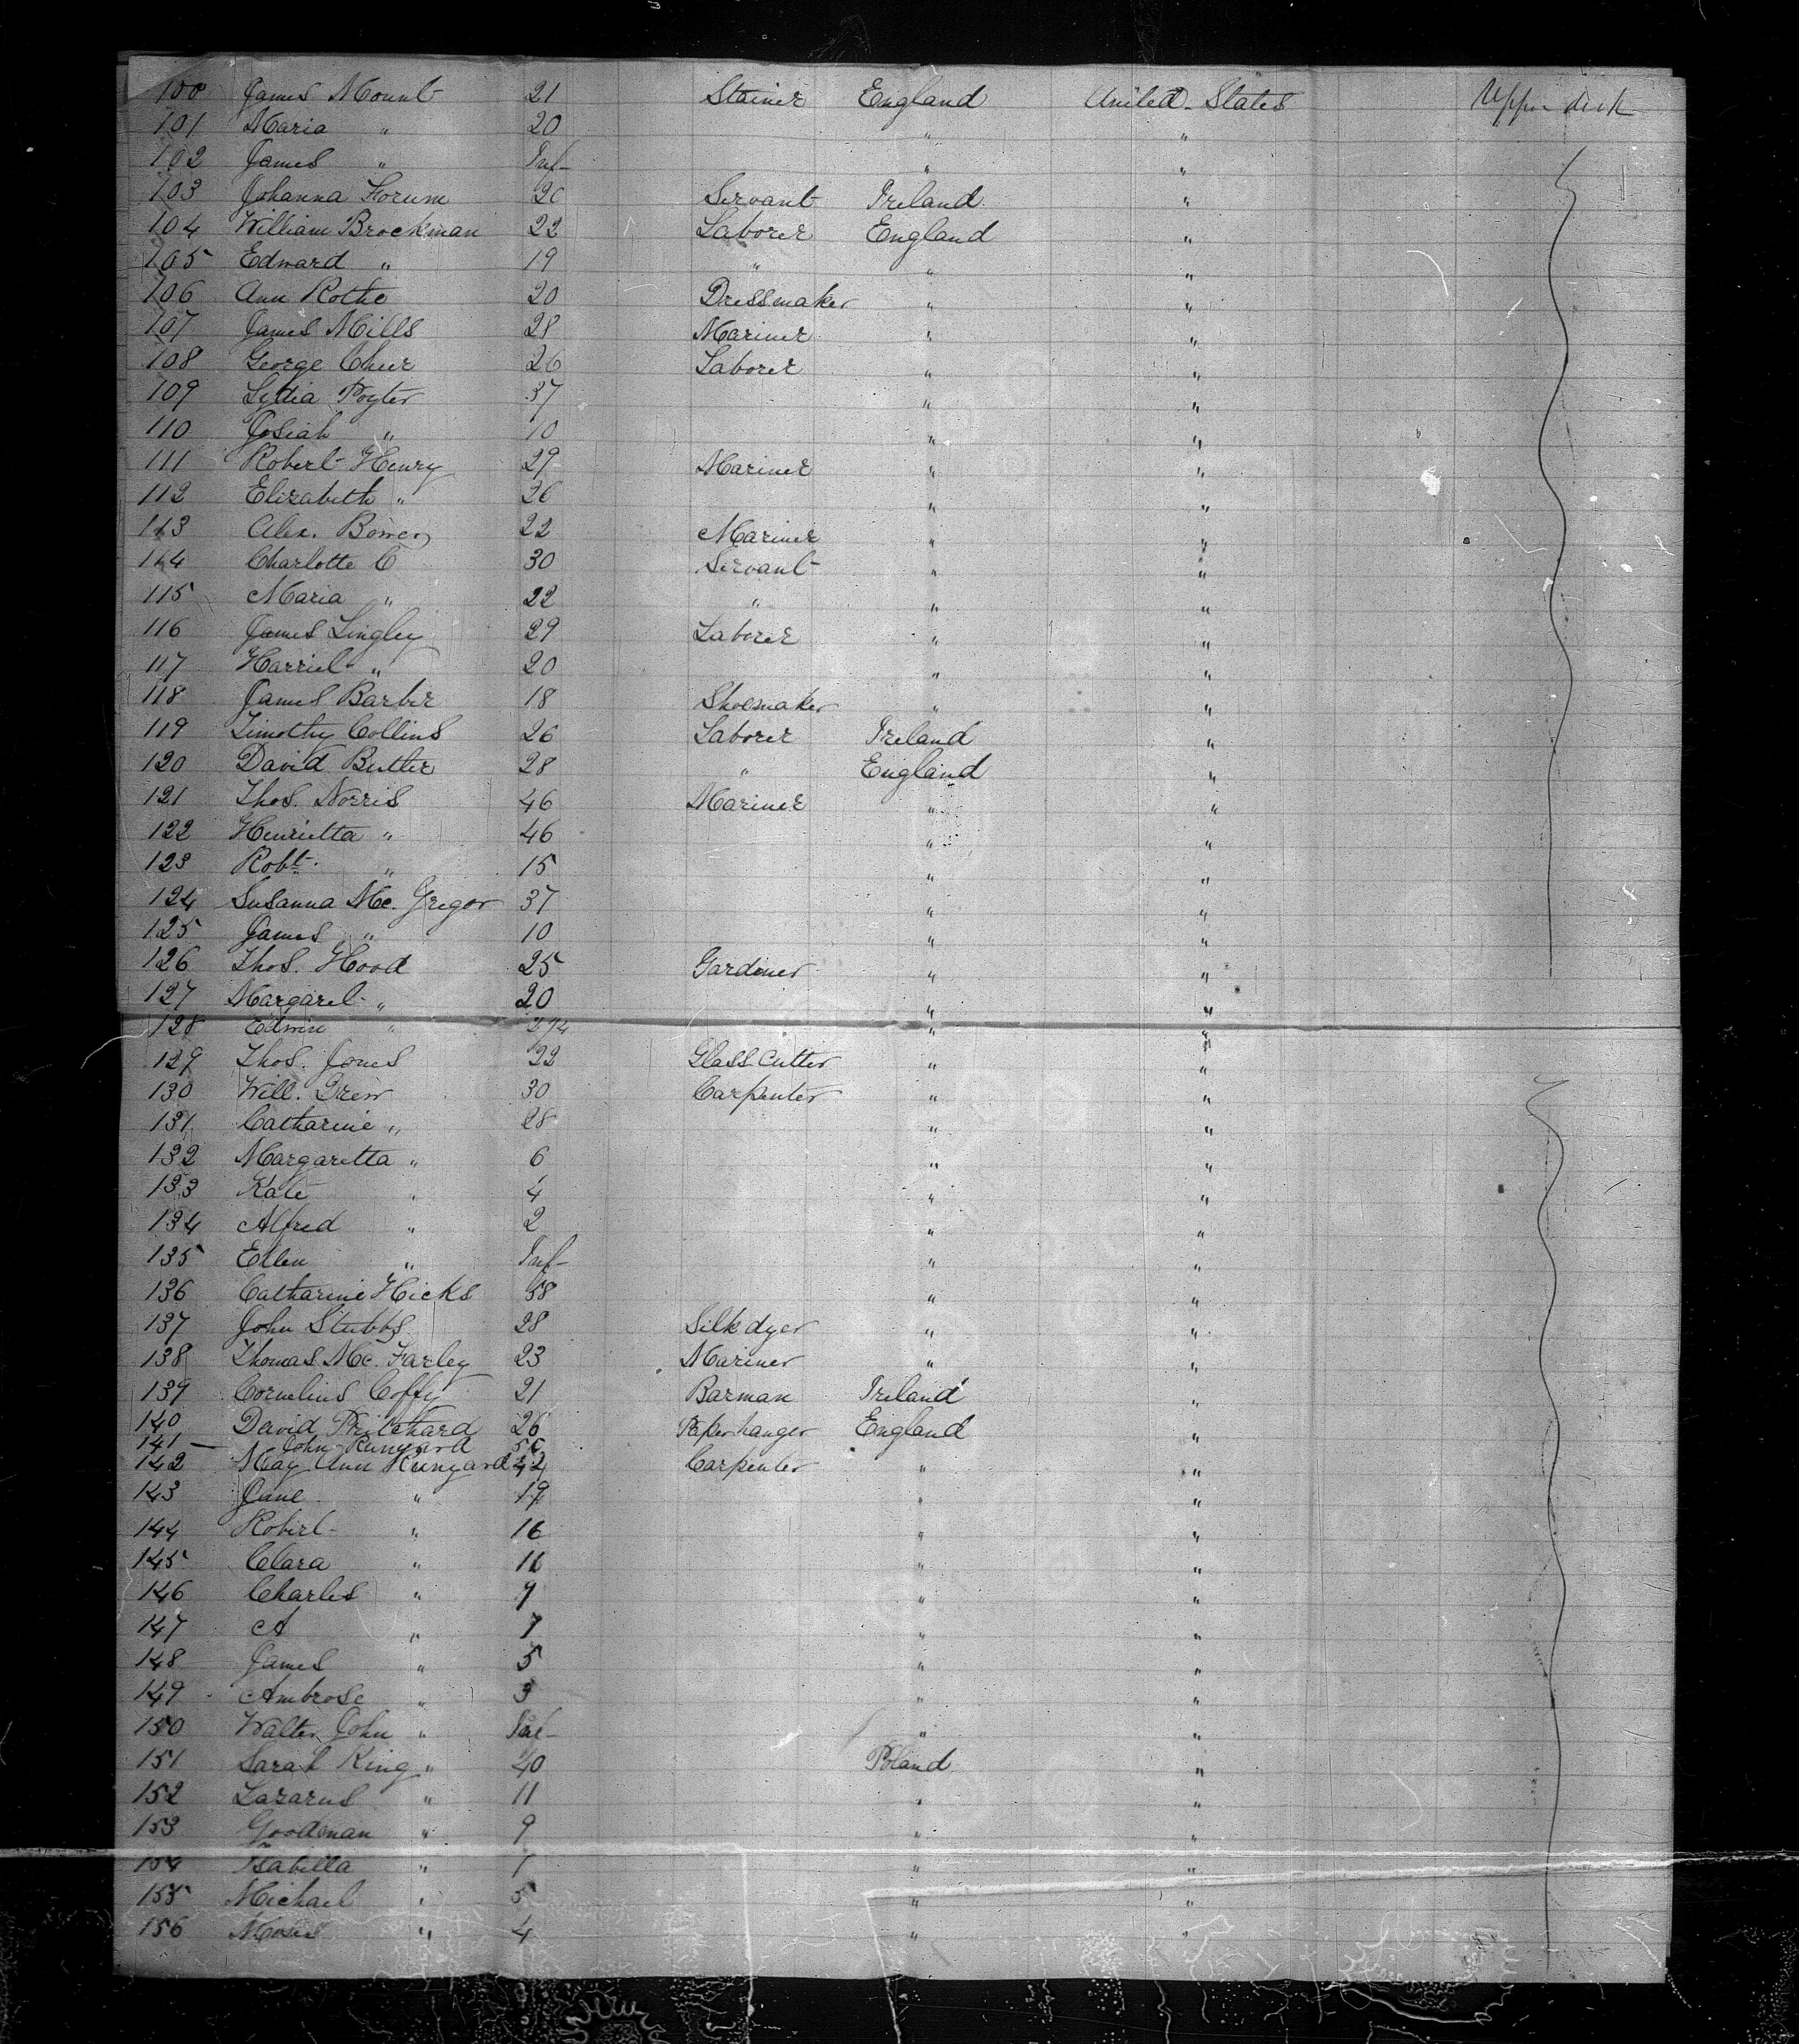 100 James Mount 21 Stainer England United States Upper deck
101 Maria " 20 " "
102 James " Inf- " "
103 Johanna Forum 20 Servant Ireland "
104 William Brockman 22 Laborer England "
105 Edward " 19 " " "
106 Ann Rothe 20 Dressmaker " "
107 James Mills 28 Mariner " "
108 George Cheer 26 Laborer " "
109 Lydia Poyter 37 " "
110 Josiah " 10 " "
111 Robert Henry 29 Mariner " "
112 Elizabeth " 26 " "
113 Alex. 22 Mariner " "
114 Charlotte C 30 Servant " "
115 Maria " 22 " " "
116 James Lingley 29 Laborer " "
117 Harriet " 20 " "
118 James Barber 18 Shoemaker " "
119 Timothy Collins 26 Laborer Ireland "
120 David Butler 28 " England "
121 Thos. Norris 46 Mariner " "
122 Henrietta " 46 " "
123 Robt. " 15 " "
124 Susanna Mc. Gregor 37 " "
125 James " 10 " "
126 Thos. Hood 25 Gardiner " "
127 Margaret " 20 " "
128 Edwin " " "
129 Thos. Jones 22 Glass Cutter " "
130 Will. Drew 30 Carpenter " "
131 Catharine " 28 " "
132 Margaretta " 6 " "
133 Kate " 4 " "
134 Alfred " 2 " "
135 Ellen " Inf- " "
136 Catharine Hicks 58 " "
137 John Stubbs 28 Silk dyer " "
138 Thomas Mc. Farley 23 Mariner " "
139 Cornelius Coffy 21 Barman Ireland "
140 David Pritchard 26 Paperhanger England "
141 — John Runyard
142 May Ann Runyard 42 Carpenter " "
143 Jane " 19 " "
144 Robert " 16 " "
145 Clara " 11 " "
146 Charles " 9 " "
147 A " 7 " "
148 James " 5 " "
149 Ambrose " 3 " "
150 Walter John " Inf- " "
151 Sarah King " 40 Poland "
152 Lazarus " 11 " "
153 Goodman " 9 " "
154 Isabella " " "
155 Michael " 5 " "
156 Moses " 4 " "